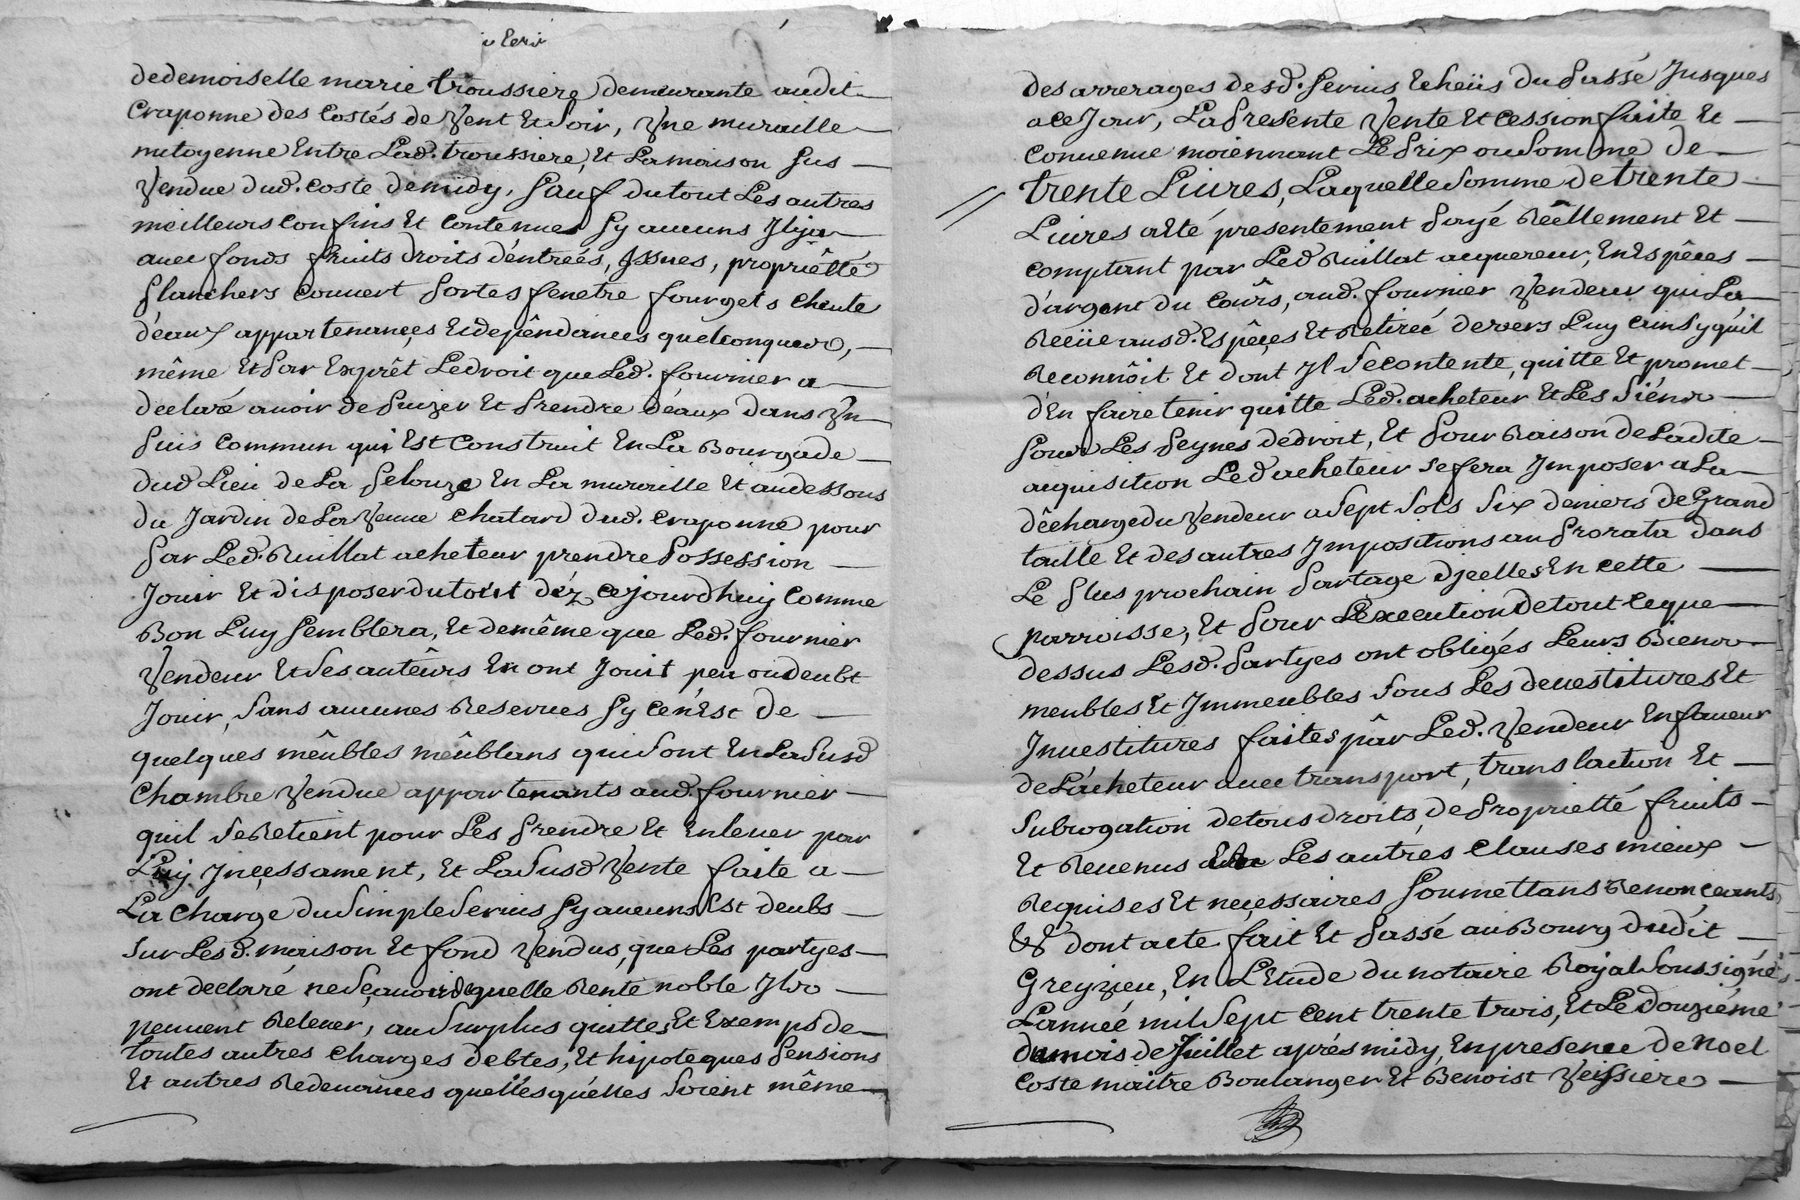 dedemoiselle marie troussiere demeurante audit
Craponne des Costés de Vent Et Soir, Vne muraille
mitoyenne Entre Lad. troussiere, Et Lamaison sus
Vendue dud. coste demidy, Sauf dutout Les autres
meilleurs confins Et contenues sy aucuns Ilya
auec fonds fruits droits d'entreés, Issues, propriêtté
planchers couuert portes fenetre fourgets cheute
d'eaux appartenançes Et depêndances quelconques,
même Et par Exprêt Ledroit que Led. fournier a
declaré auoir de puizer Et prendre d'eaux dans Vn
puis commun qui Est construit En La Bourgade
dud Lieu de La pelouze En La muraille Et audessous
du Jardin de La Veuue chatard dud. craponne pour
par Led. Ruillat acheteur prendre possession
Jouir Et disposer dutout déz cejourdhuy Comme
Bon Luy semblera, Et demême que Led. fournier
Vendeur Et ses auteûrs En ont Jouit peu ou deubt
Jouir, sans aucunes Reserues sy cen'Est de
quelques mêubles mêublans quisont En La susd
chambre Vendue appartenants aud. fournier
quil seRetient pour Les prendre Et Enleuer par
Luy Inçessament, Et La susd Vente faite a
La charge du simple seruis sy aucuns Est deubs
sur Lesd. maison Et fond Vendus, que Les partyes
ont declaré nesçauoir de quelle Rente noble Ils
peuuent Releuer, au surplus quittes Et Exemps de
toutes autres charges debtes, Et hipoteques pensions
Et autres Redeuances quellesquélles soient même
des arrerages desd. seruis Echeüs du passé Jusques
aceJour, La presente Vente Et cession faite Et
conuenue moiennant Le prix ou somme de
trente Liures, Laquelle somme de trente
Liures a Eté presentement payé Réêllement Et
comptant par Led Ruillat acquereur, En Espêces
d'argent du coûrs, aud. fournier Vendeur qui La
Reçüe ausd. Espêçes Et Retireé devers Luy ainsy quil
Reconnôit Et dont Il secontente, quitte Et promet
d'En faire tenir quitte Led. acheteur Et Les siéns
sous Les peynes dedroit, Et pour Raison de Ladite
acquisition Led acheteur se fera Imposer a La
dêcharge du Vendeur a sept sols six deniers de Grand
taille Et des autres Impositions au prorata dans
Le plus prochain partage d'jcelles En cette
parroisse, Et pour Lexecution de tout ceque
dessus Lesd. partyes ont obligés Leurs Biens
meubles Et Immeubles sous Les deuestitures Et
Inuestitures faites pâr Led. Vendeur En faueur
de L'acheteur auec transport, translaction Et
subrogation detous droits, de proprietté fruits
Et Reuenus Les autres clauses mieux
Requises Et neçessaires soumettans Renonçeants
&& dont acte fait Et passé au Bourg dudit
Greyzieu, En L'Etude du notaire Royal soussigné
Lanneé mil sept cent trente trois, Et Le douziéme
dumois de Juillet aprés midy, En presence de noel
coste maître Boulanger Et Benoist Veyssiere